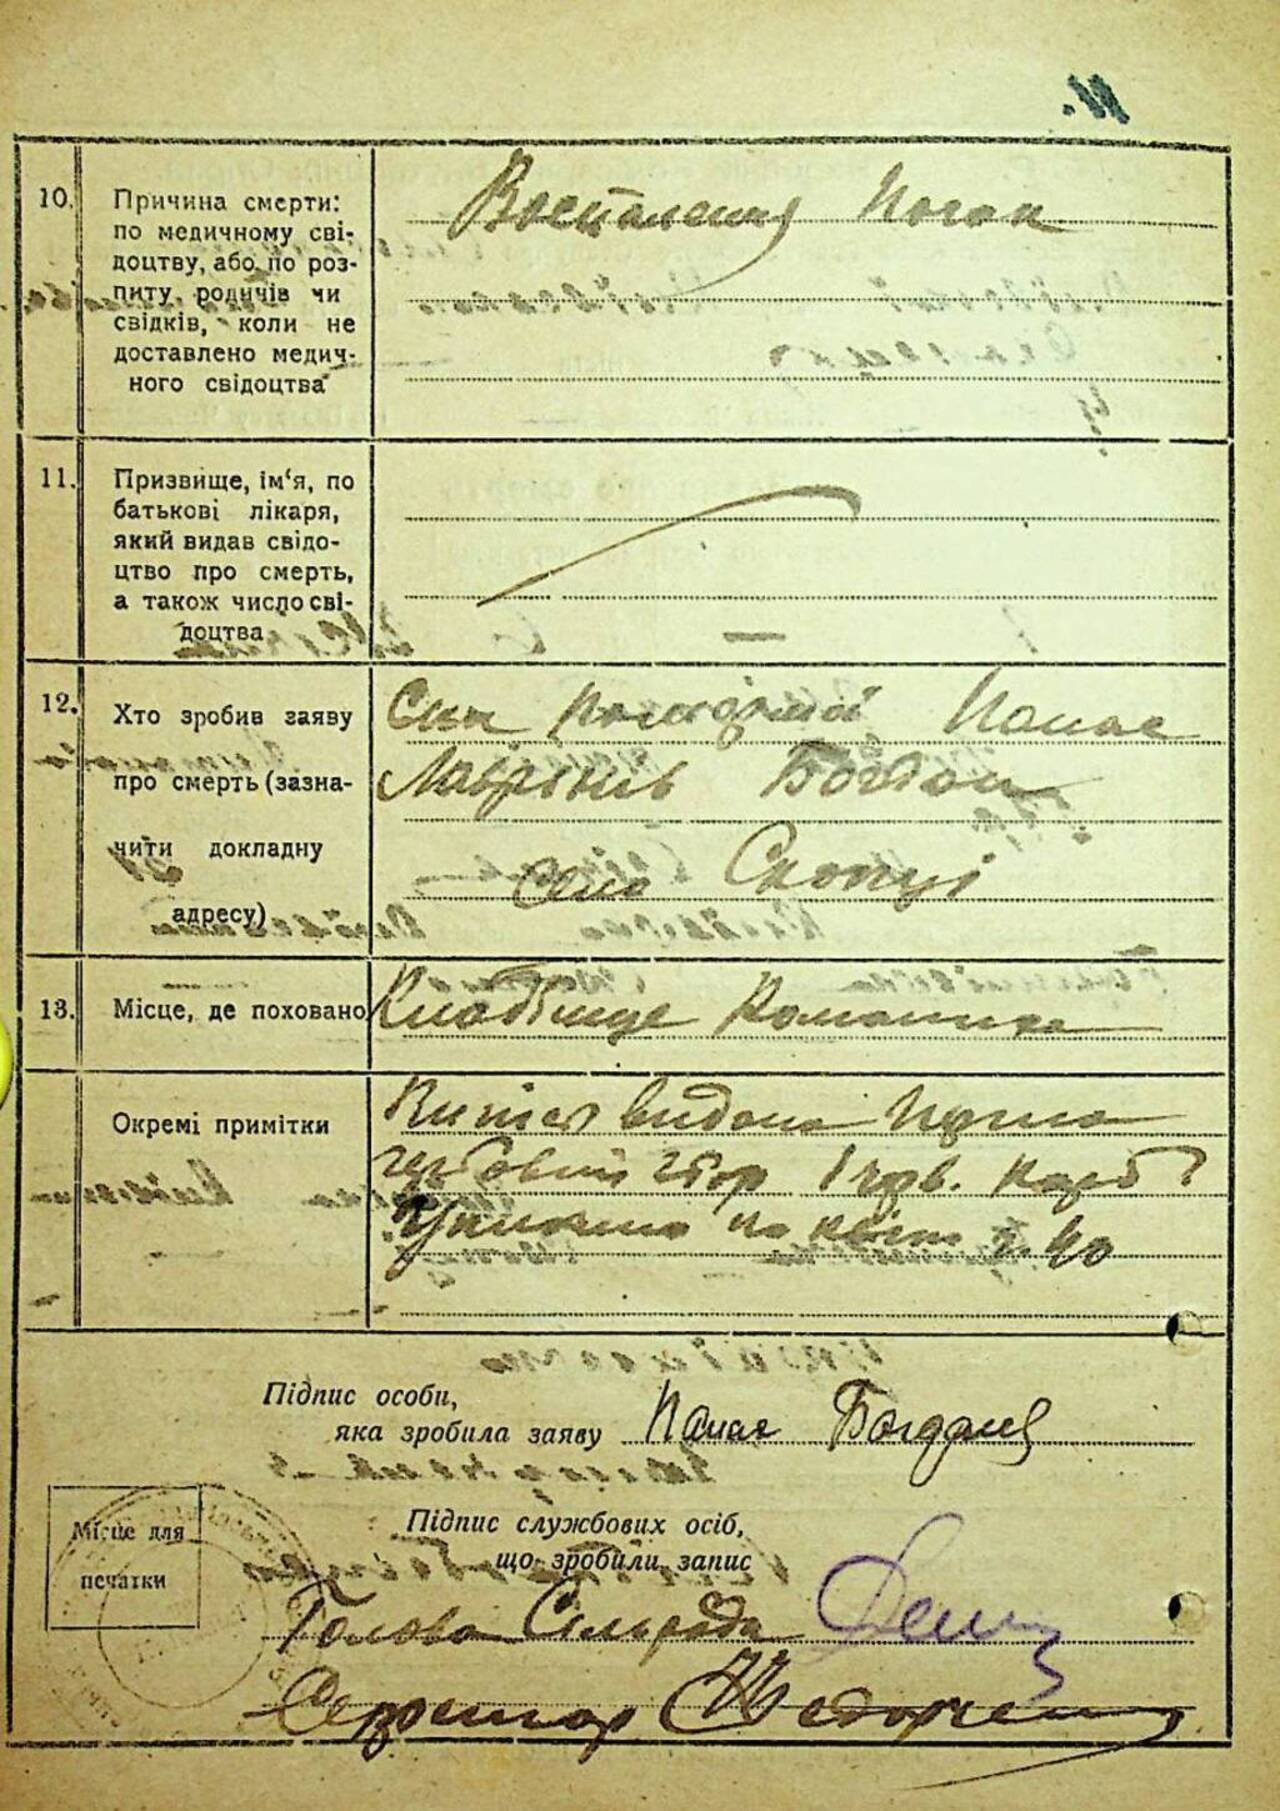 11.
10.
Причина смерти:
по медичному сві-
доцтву, або по роз-
питу родичів чи
свідків, коли не
доставлено медич-
ного свідоцтва
Воспаления Почок
11.
Призвище, ім‘я, по
батькові лікаря,
який видав свідо-
цтво про смерть,
а також число сві-
доцтва
12.
Хто зробив заяву
про смерть (зазна-
чити докладну
адресу)
Син Панас
Лаврінів Богдан
села Скопці
13.
Місце, де поховано
Кладбище
Окремі примітки
Витяг видана
гербовий збор 1 чрв. карб
по квит 40
Підпис особи,
яка зробила заяву Панас Богданец
Місце для
печатки
Підпис службових осіб,
що зробили запис
Голова Сільради
Секретар